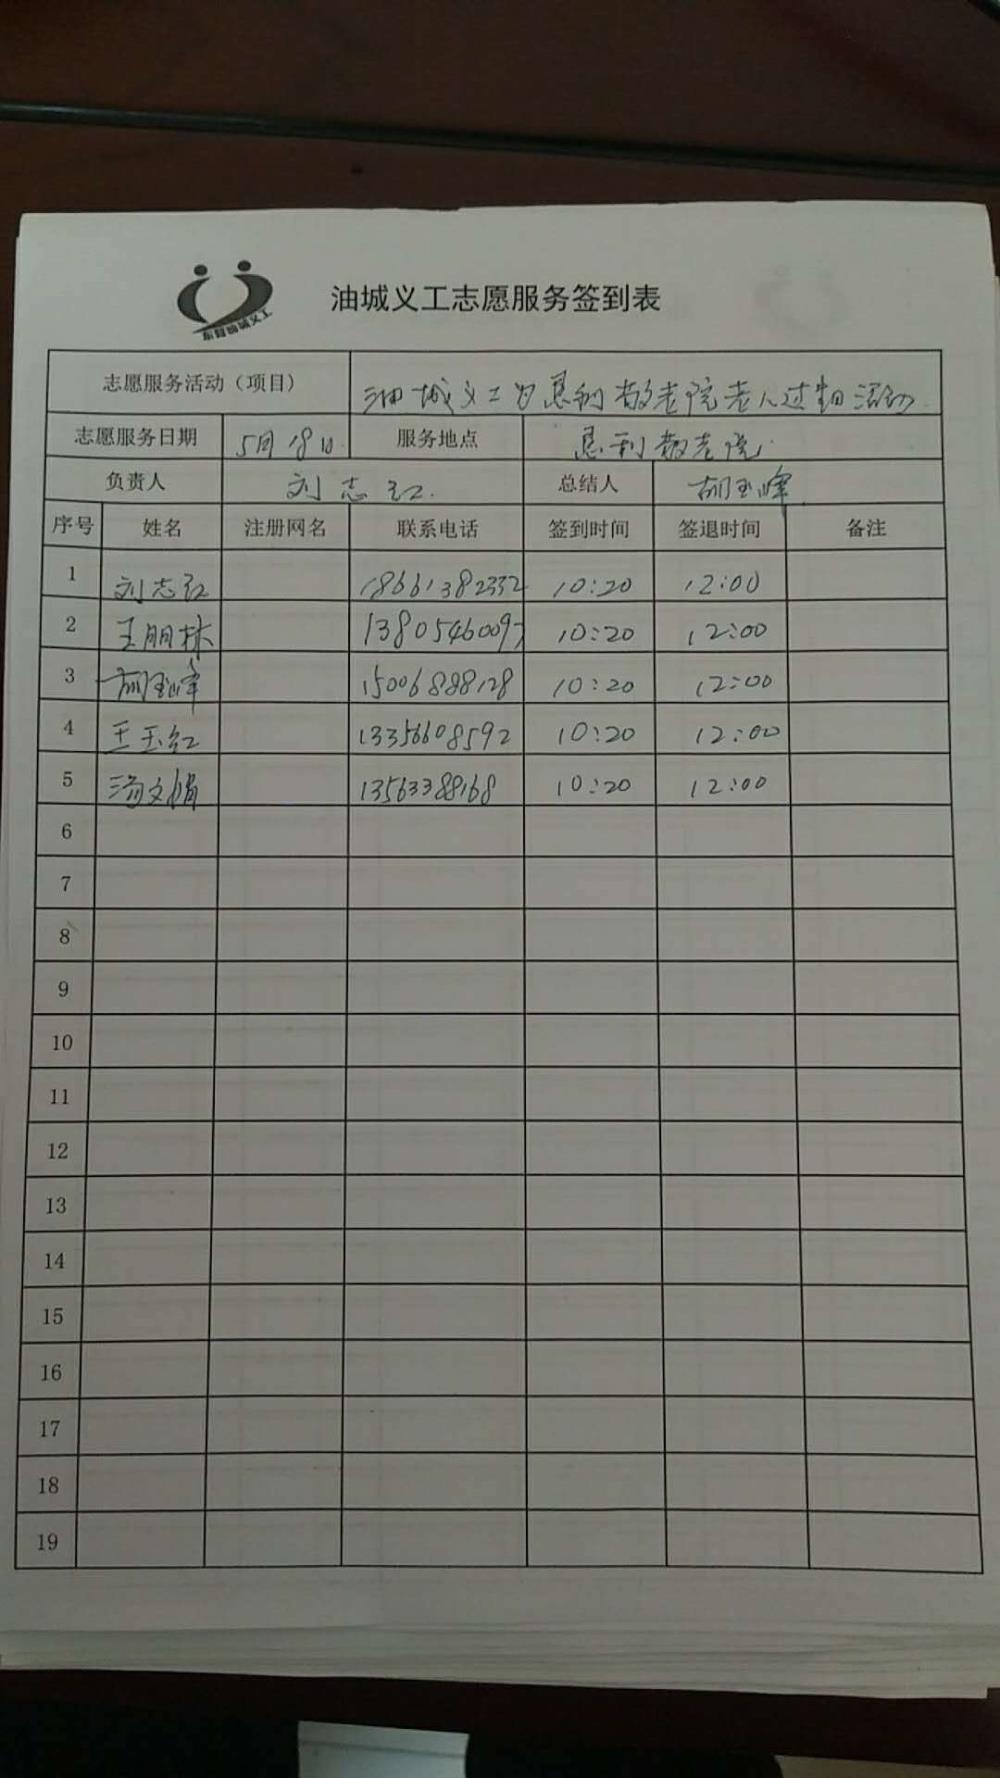 东营油城义工
油城义工志愿服务签到表
志愿服务活动（项目） 油城义工为惠利敬老院老人过生日活动
志愿服务日期 5月18日 服务地点 惠利敬老院
负责人 刘志红 总结人 胡玉峰
序号 姓名 注册网名 联系电话 签到时间 签退时间 备注
1 刘志红 18661382332 10:20 12:00
2 王朋林 13805460097 10:20 12:00
3 胡玉峰 15006888128 10:20 12:00
4 王玉红 13356608592 10:20 12:00
5 汤文娟 13563388168 10:20 12:00
6
7
8
9
10
11
12
13
14
15
16
17
18
19